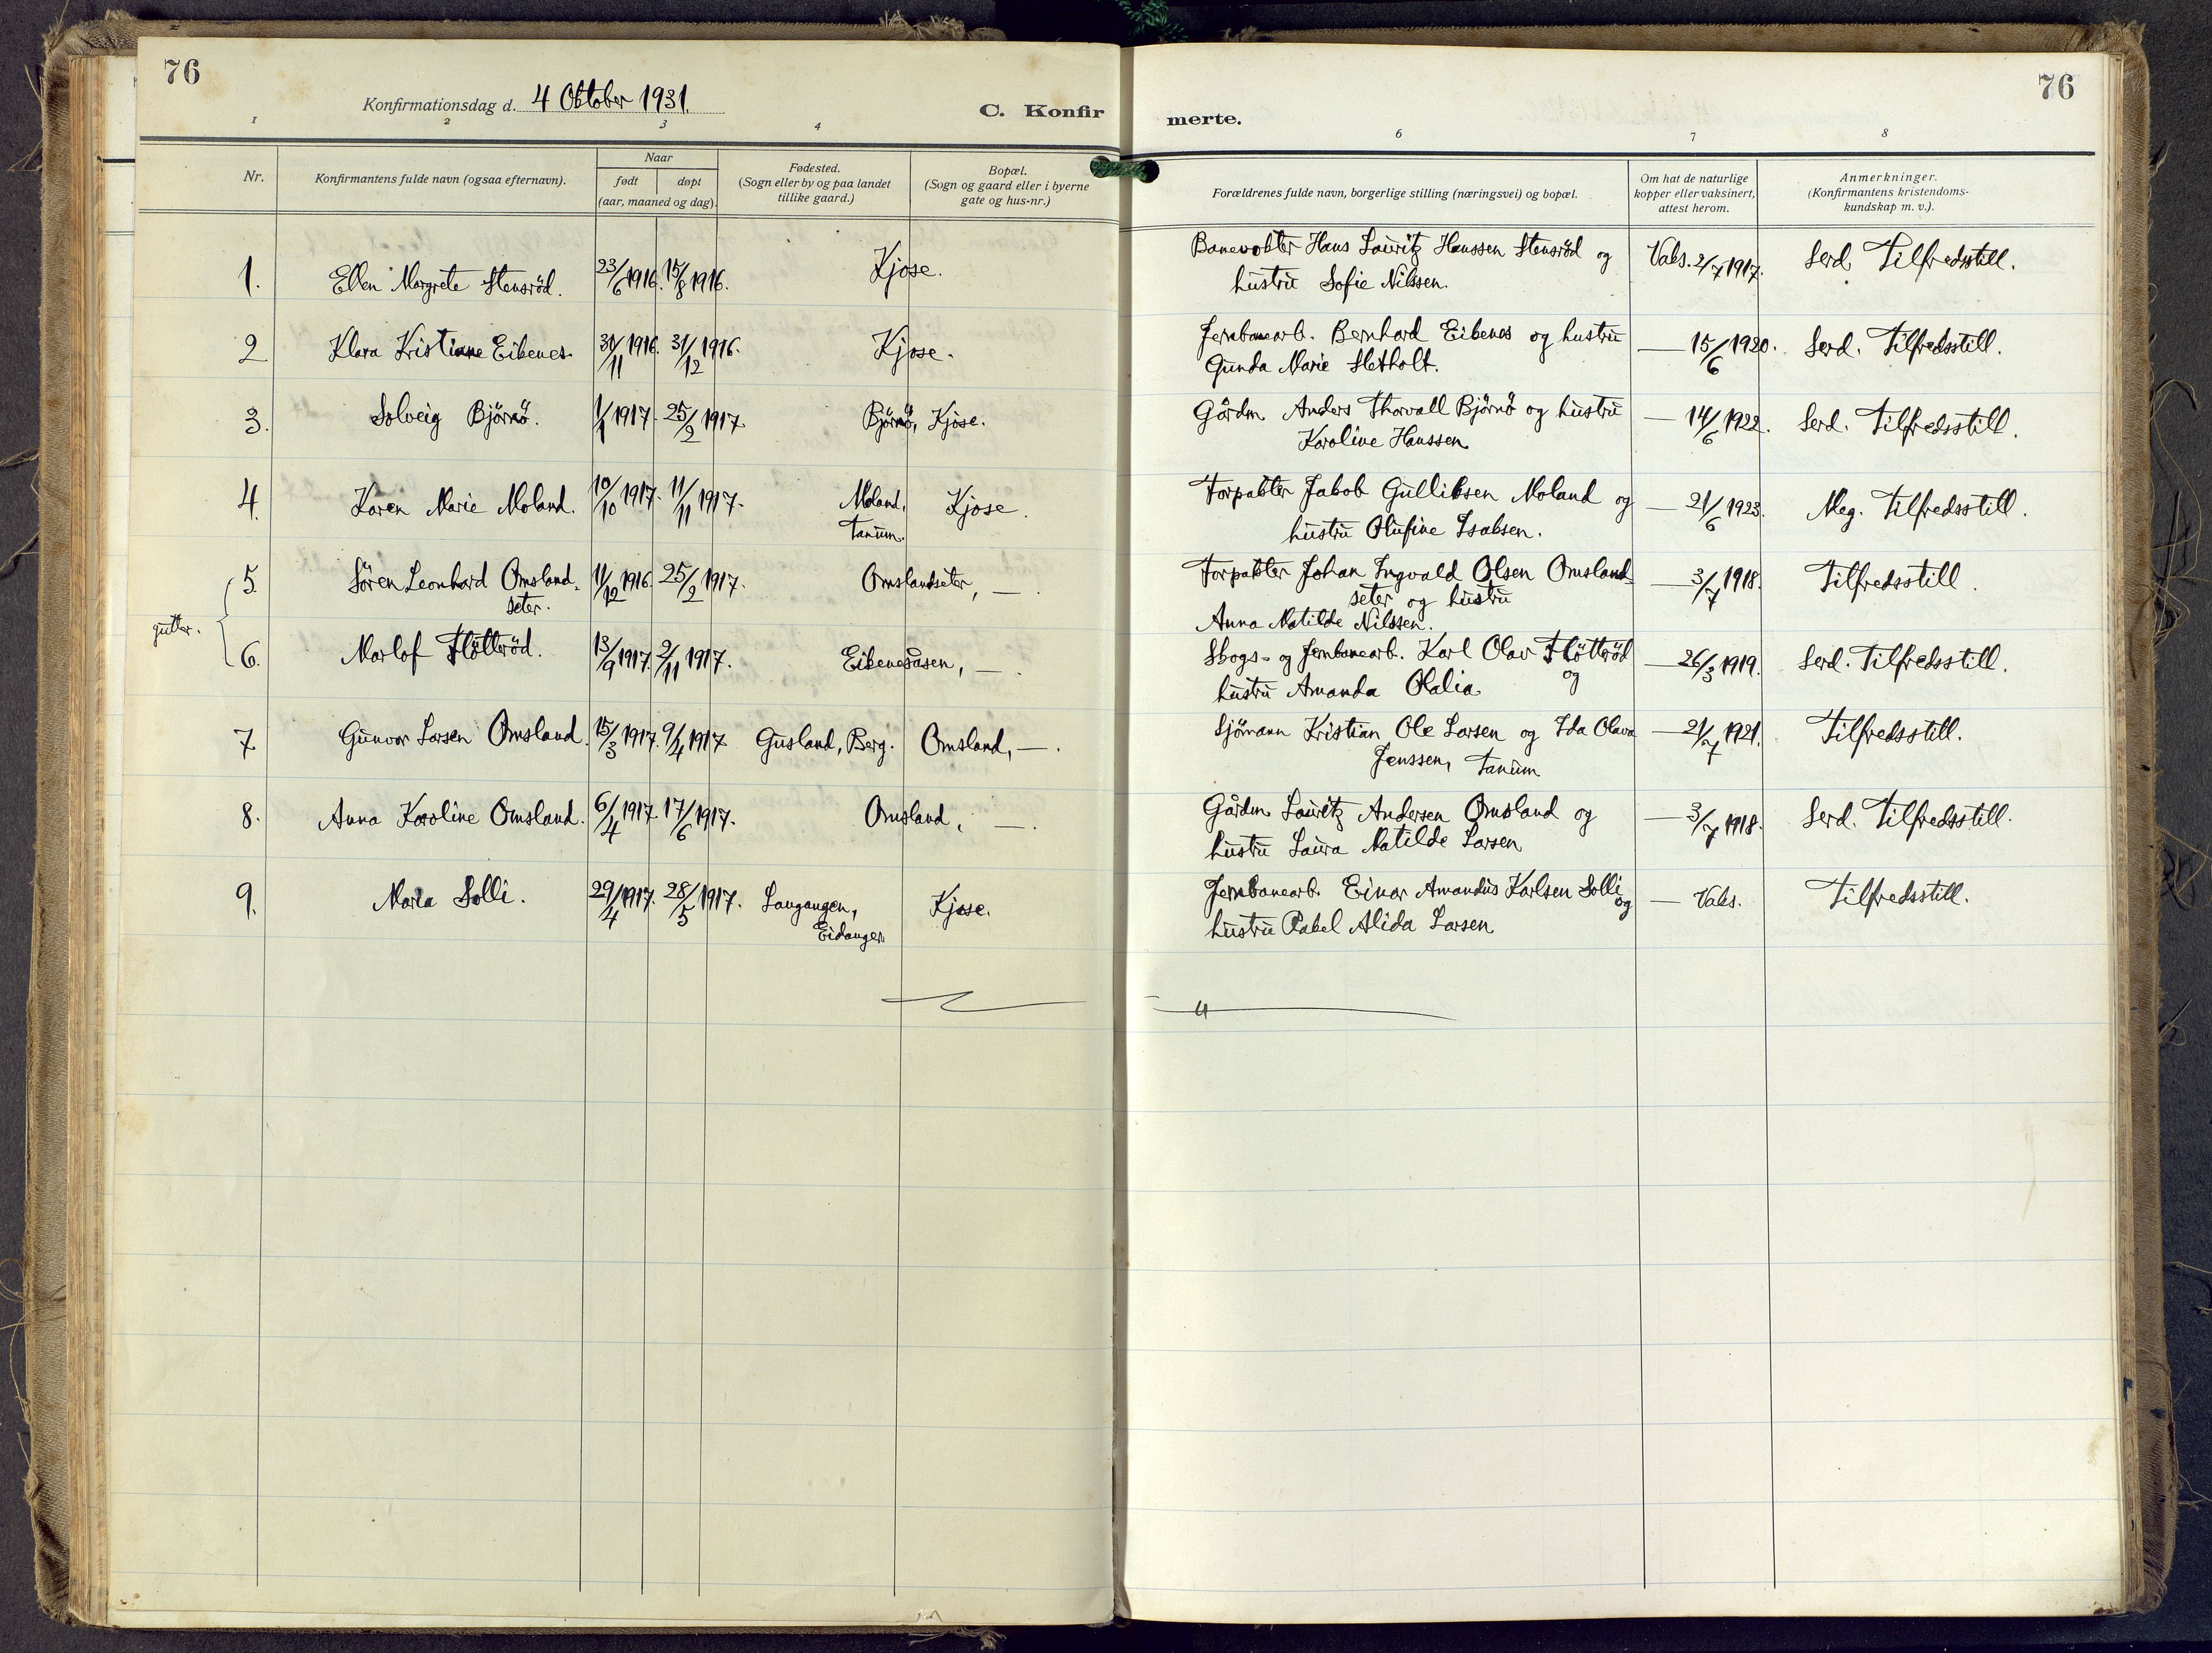 76
Konfirmationsdag d. 4 Oktober 1931.
C. Konfir
1 2 3 4
Nr.
Konfirmantens fulde navn (ogsaa efternavn).
Naar
født døpt
(aar, maaned og dag).
Fødested.
(Sogn eller by og paa landet
tillike gaard.)
Bopæl.
(Sogn og gaard eller i byerne
gate og hus-nr.)
1. Ellen Margrete Stensröd. 23/6 1916. 15/8 1916. Kjose.
2 Klara Kristiane Eikenes. 30/11 1916. 31/12 1916. Kjose.
3. Solveig Björnö. 1/1 1917. 25/2 1917. Björnö, Kjose.
4. Karen Marie Moland. 10/10 1917. 11/11 1917. Moland, Kjose.
Tanum.
5. Sören Leonhard Omsland- 11/12 1916. 25/2 1917. Omslandseter, —.
seter.
gutter.
6. Marlof Flöttröd. 13/9 1917. 2/11 1917. Eikenesåsen, —.
7 Gunvor Larsen Omsland. 15/3 1917. 9/4 1917 Gusland, Berg. Omsland, —.
8. Anna Karoline Omsland. 6/4 1917. 17/6 1917. Omsland, —.
9. Maria Solli. 29/4 1917. 28/5 1917. Langangen, Kjose.
Eidanger
76
merte.
6 7 8
Forældrenes fulde navn, borgerlige stilling (næringsvei) og bopæl.
Om hat de naturlige
kopper eller vaksinert,
attest herom.
Anmerkninger.
(Konfirmantens kristendoms-
kundskap m. v.).
Banevokter Hans Lauritz Hanssen Stensröd og Vaks. 2/7 1917. Serd. Tilfredsstill.
hustru Sofie Nilssen.
Jernbanearb. Bernhard Eikenes og hustru — 15/6 1920. Serd. Tilfredsstill.
Gunda Marie Sletholt.
Gårdm. Anders Thorvall Björnö og hustru — 14/6 1922. Serd. Tilfredsstill.
Karoline Hanssen
Forpakter Jakob Gulliksen Moland og — 21/6 1923. Meg. Tilfredsstill.
hustru Olufine Isaksen.
Forpakter Johan Ingvald Olsen Omsland- 3/7 1918. Tilfredsstill.
seter og hustru
Anna Matilde Nilssen.
Skogs- og Jernbanearb. Karl Olav Flöttröd — 26/3 1919. Serd. Tilfredsstill.
og
hustru Amanda Olalia
Sjömann Kristian Ole Larsen og Ida Olava — 21/7 1921. Tilfredsstill.
Jenssen, Tanum
Gårdm. Lauritz Andersen Omsland og — 3/7 1918. Serd. Tilfredsstill.
hustru Laura Matilde Larsen
Jernbanearb. Einar Amandus Karlsen Solli — Vaks. Tilfredsstill.
og
hustru Rakel Alida Larsen